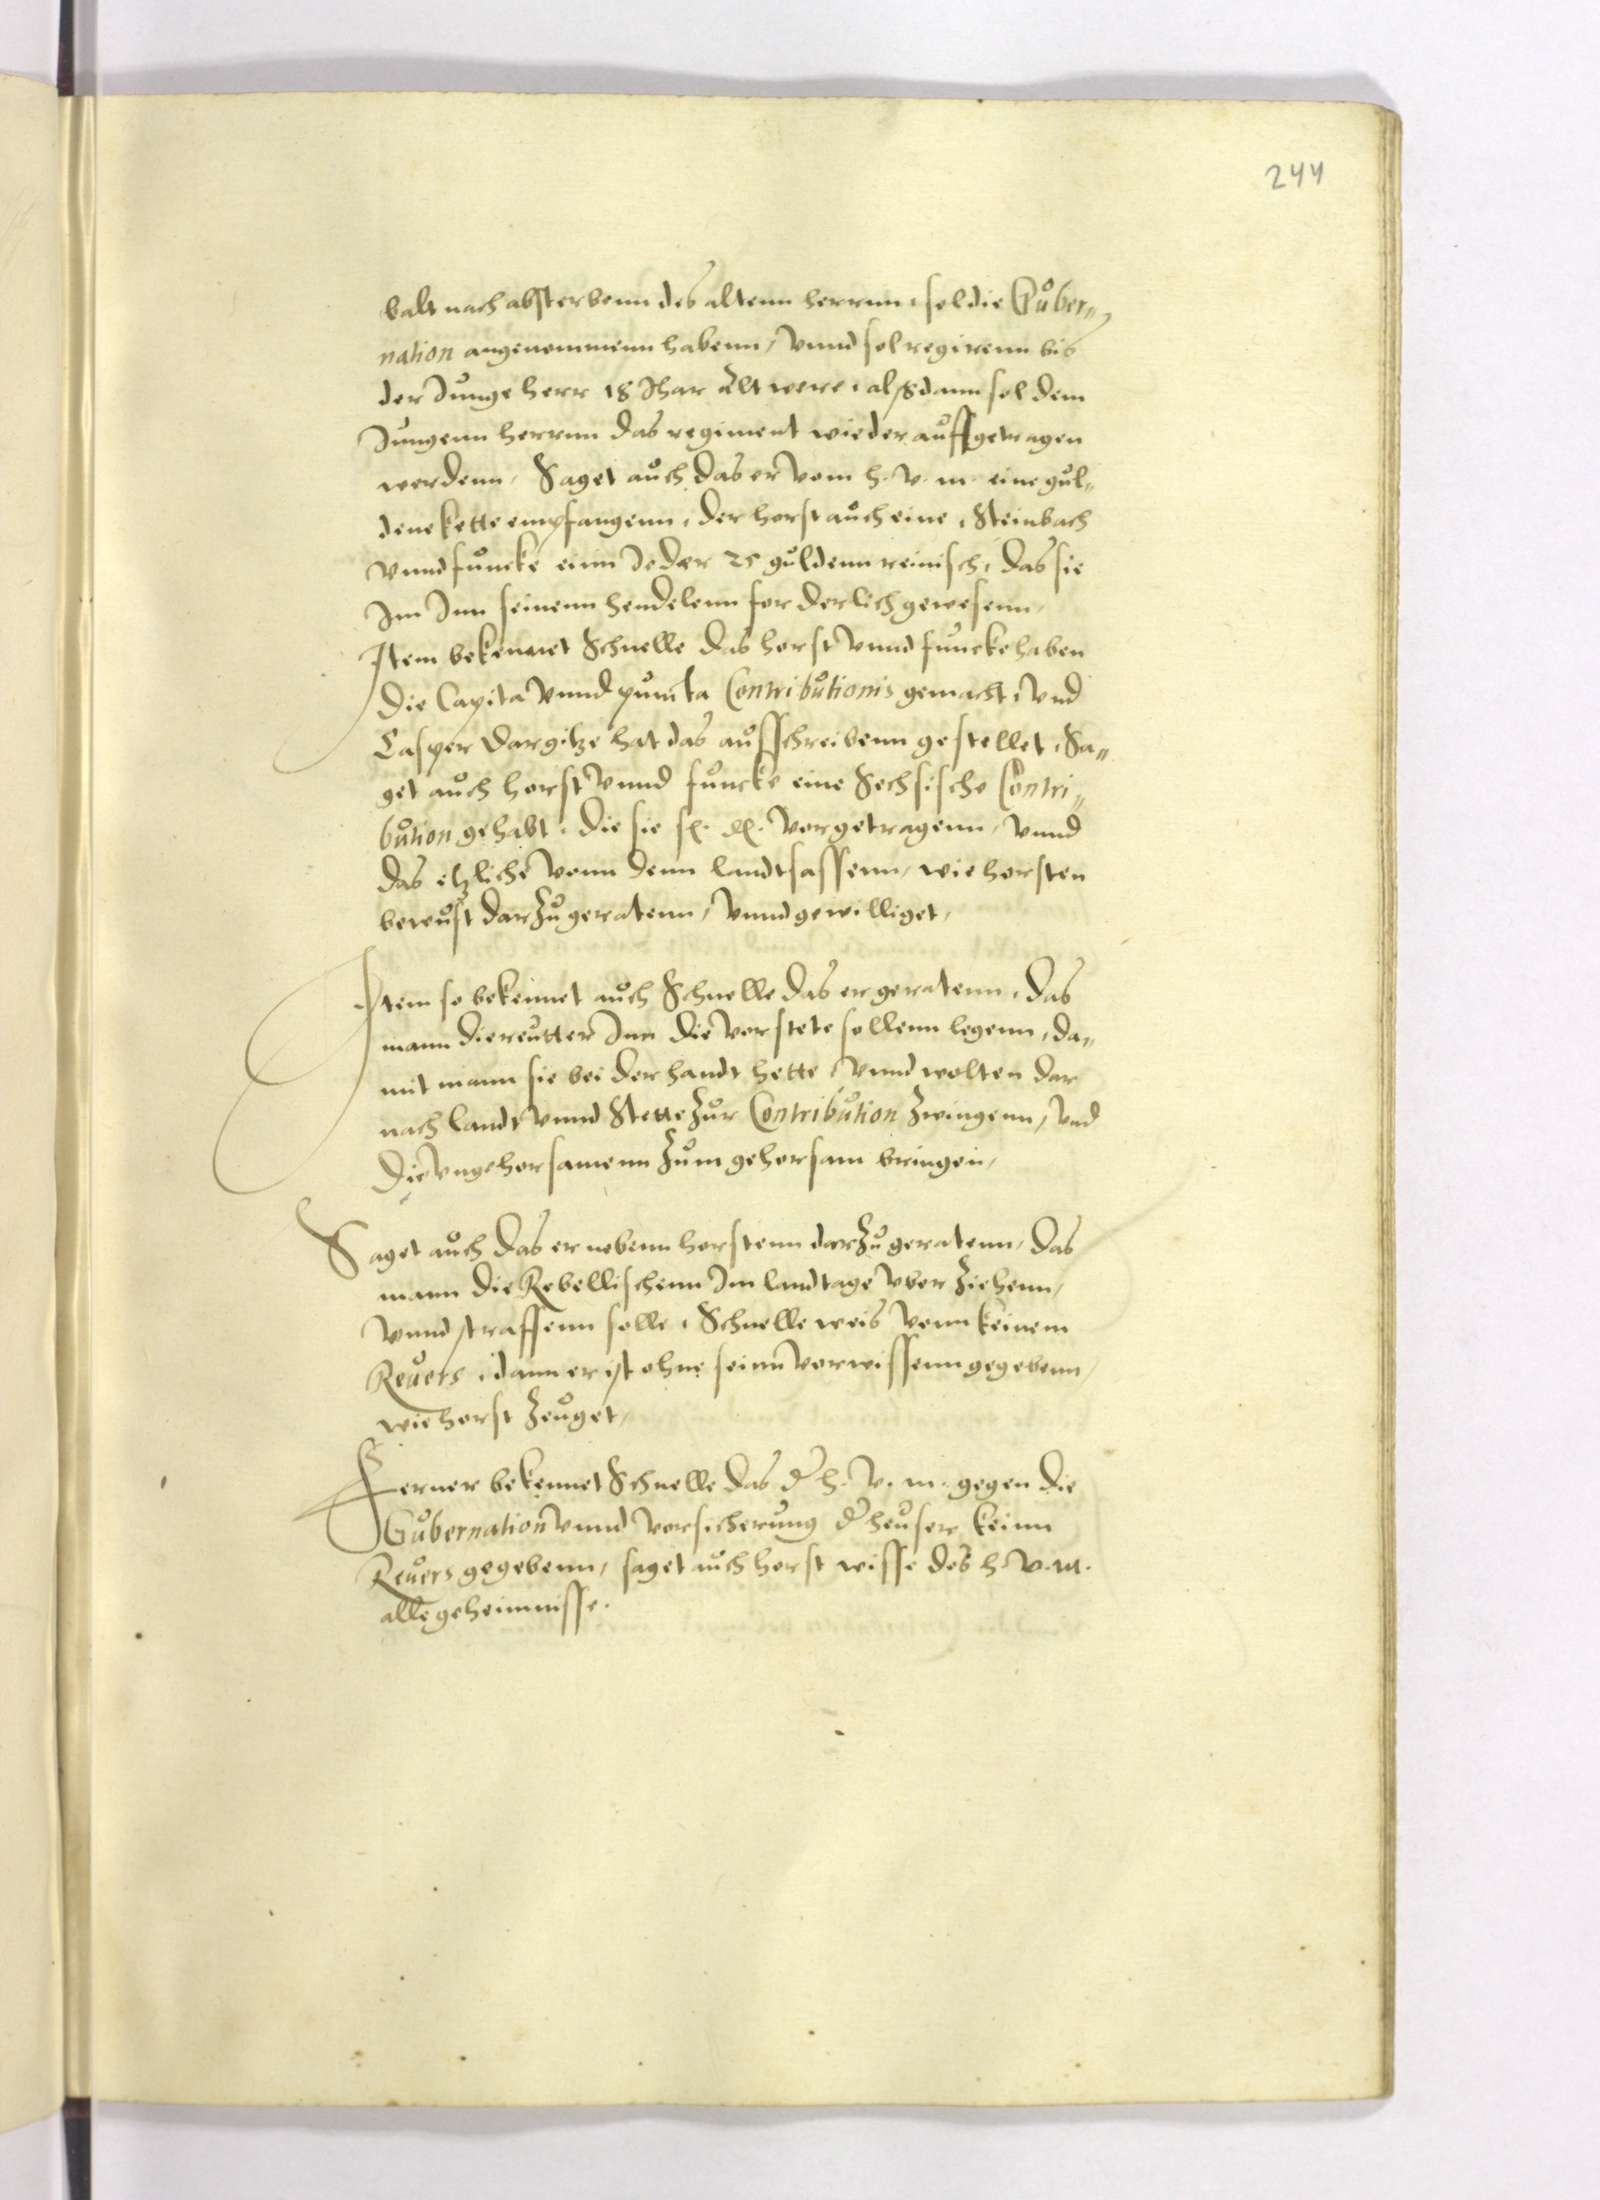 244
balt nach absterbenn des altenn herrnn, sol die Guber„
nation angenommenn habenn, vnnd sol regirenn bis
der Junge herr 18 Jhar alt were, alßdann sol dem
Jungenn herrnn das regiment wieder auffgetragen
werdenn, Saget auch das er vom h. v. m. eine gul„
dene kette empfangenn, der horst auch eine, Steinbach
vnnd funcke einn Jeder 25 guldenn reinisch, das sie
Im Inn seinenn hendelenn forderlich gewesenn,
Item bekennet Schnelle das horst vnnd funcke haben
die Capita vnnd puncta Contributionis gemacht, vnd
Casper Dargitze hat das aufschreibenn gestellet, Sa„
get auch horst vnnd funcke eine Sechsische Contri„
bution gehabt, die sie vorgetragenn, vnnd
das etzliche vonn denn landtsassenn, wie horsten
bewust darzu geratenn, vnnd gewilliget,
Item so bekennet auch Schnelle das er geratenn, das
mann die reutter Inn die vorstete sollenn legenn, da„
mit mann sie bei der handt hette, vnnd wolten dar
nach landt vnnd Stette zur Contribution zwingenn, vnd
die vngehorsamenn zum gehorsam bringen,
Saget auch das er nebenn horstenn darzu geratenn, das
mann die Rebellischenn Im landtage vberziehenn,
vnnd straffenn solle, Schnelle weis vonn keinem
Reuers, dann er ist ohne seinn vorwissenn gegebenn,
wie horst zeuget,
Ferner bekennet Schnelle das d h. v. m. gegen die
Gubernation vnnd vorsicherung d heuser keinn
Reuers gegebenn, saget auch horst wisse des h. v. m.
alle geheimnisse.